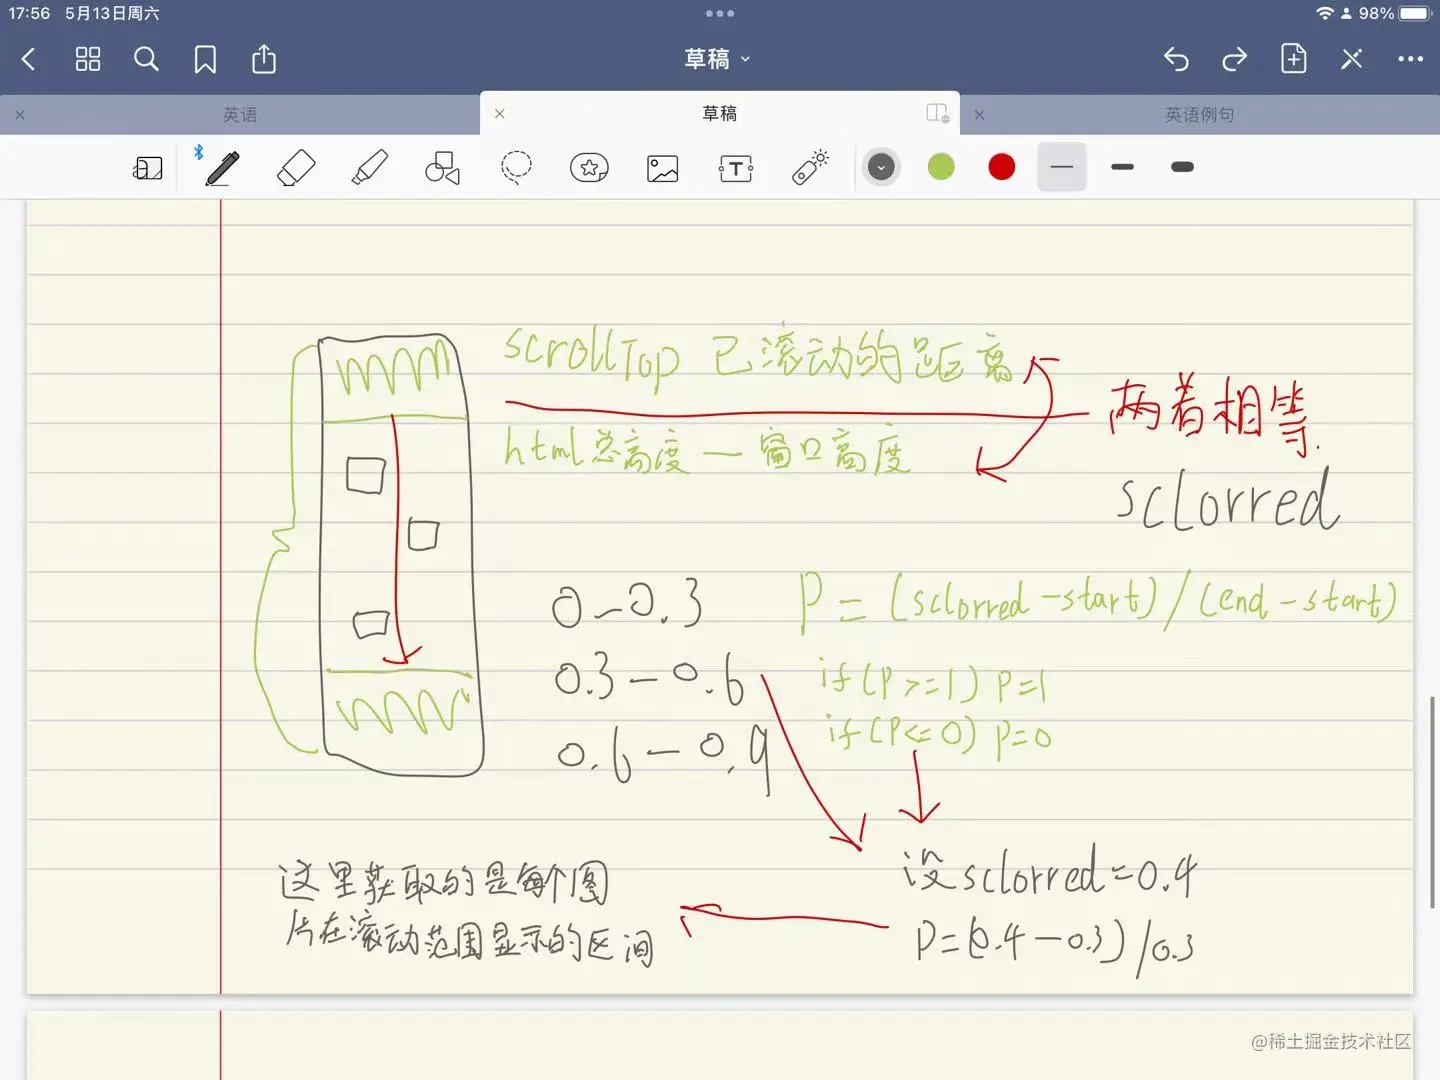 17:56 5月13日周六
98%
草稿
英语
草稿
英语例句
scrollTop 已滚动的距离
html总高度 — 窗口高度
两者相等.
sclorred
0-0.3
P = (sclorred - start) / (end - start)
0.3 - 0.6
if(P>=1) P=1
if(P<=0) P=0
0.6 - 0.9
设sclorred=0.4
P=(0.4-0.3)/0.3
这里获取的是每个图
片在滚动范围显示的区间
@稀土掘金技术社区